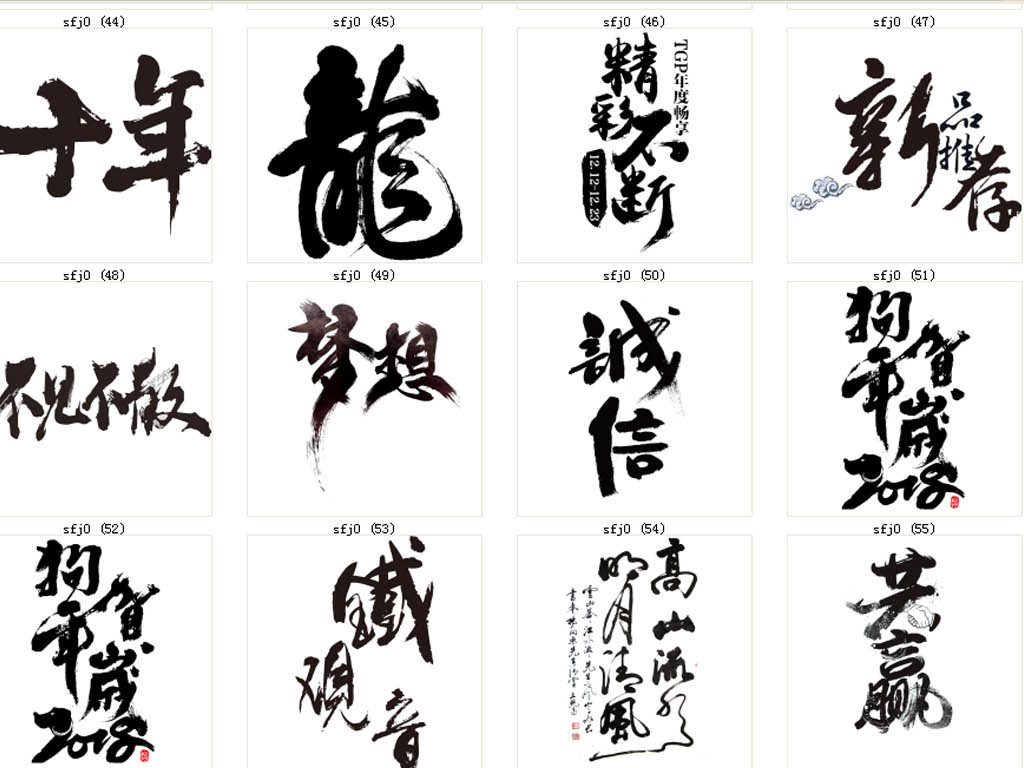 sfj0 (44)
十年
sfj0 (45)
龍
sfj0 (46)
TGP年度畅享
精彩不断
12.12-12.23
sfj0 (47)
新品推荐
sfj0 (48)
不见不散
sfj0 (49)
梦想
sfj0 (50)
誠信
sfj0 (51)
狗年
賀歲
2018
sfj0 (52)
狗年
賀歲
2018
sfj0 (53)
鐵觀音
sfj0 (54)
高山流水
明月清風
sfj0 (55)
共赢